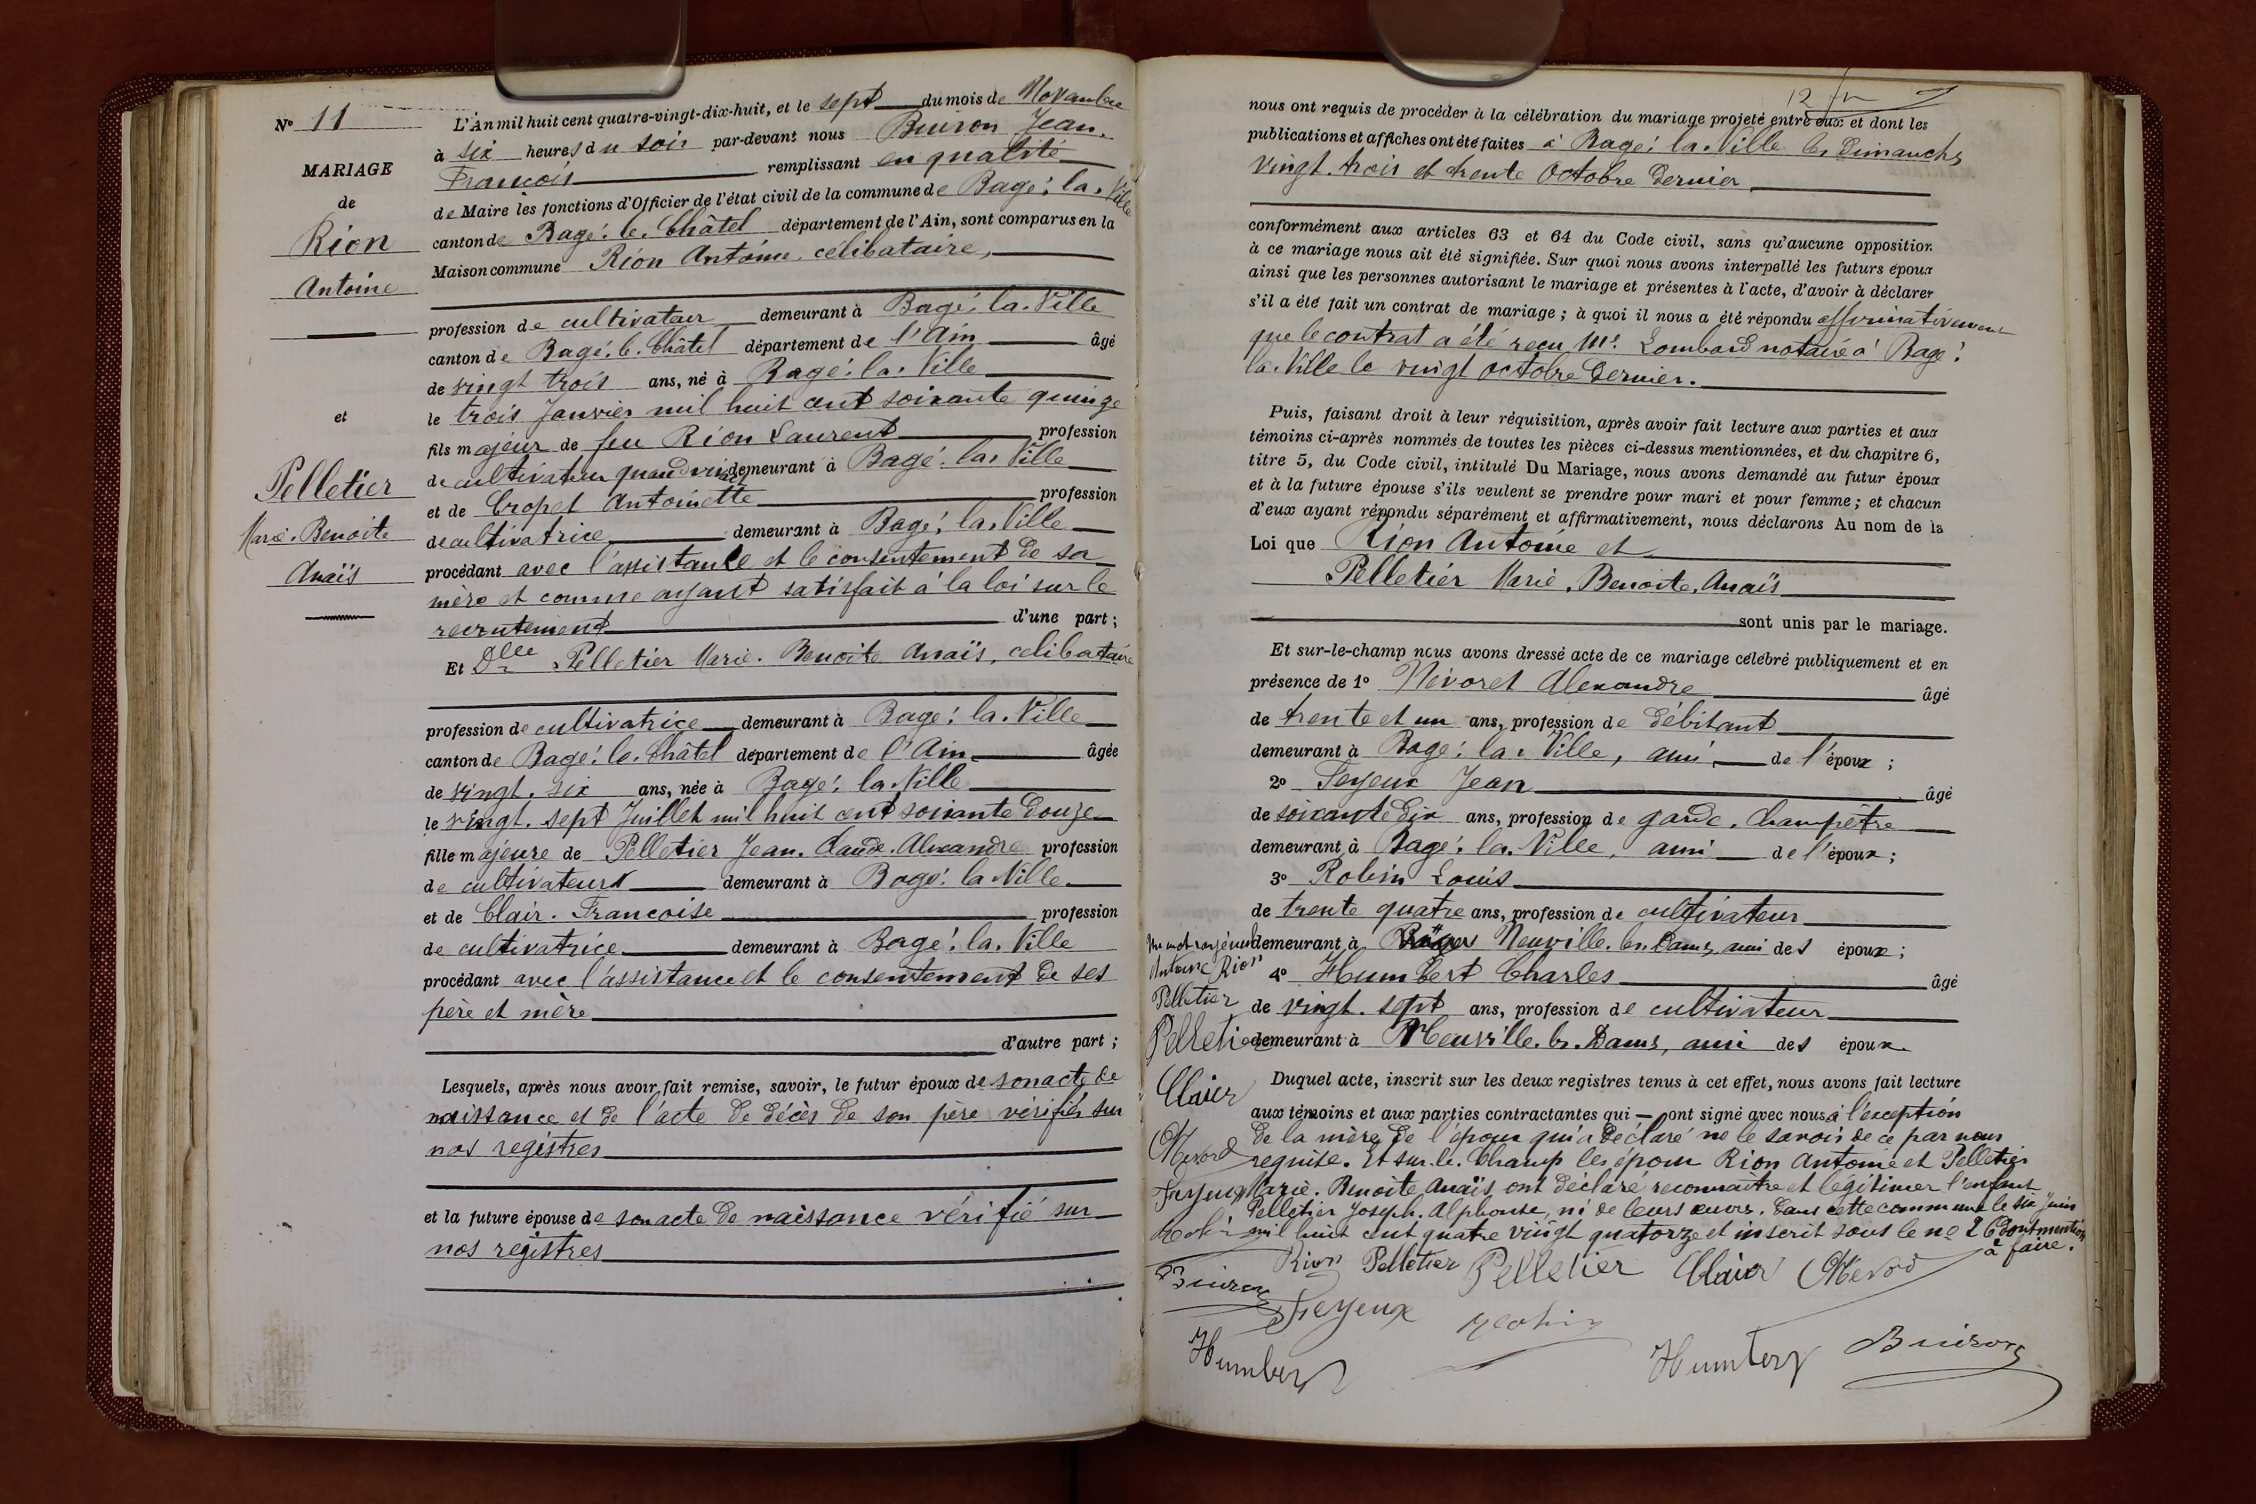 Nº 11
MARIAGE
de
Rion
Antoine
et
Pelletier
Marie-Benoite
Anaïs
L'An mil huit cent quatre-vingt-dix-huit, et le sept du mois de Novembre
à six heures du soir par-devant nous Buiron Jean-
François remplissant en qualité
de Maire les fonctions d'Officier de l'état civil de la commune de Bagé-la-Ville
canton de Bagé-le-Châtel département de l'Ain, sont comparus en la
Maison commune Rion Antoine célibataire,
profession de cultivateur demeurant à Bagé-la-Ville
canton de Bagé-le-Châtel département de l'Ain âgé
de vingt trois ans, né à Bagé-la-Ville
le trois Janvier mil huit cent soixante quinze
fils majeur de feu Rion Laurent profession
de cultivateur quand vivait demeurant à Bagé-la-Ville
et de Cropet Antoinette profession
de cultivatrice demeurant à Bagé-la-Ville
procédant avec l'assistance et le consentement de sa
mère et comme ayant satisfait à la loi sur le
recrutement d'une part ;
Et Dlle Pelletier Marie-Benoite Anaïs, célibataire
profession de cultivatrice demeurant à Bagé-la-Ville
canton de Bagé-le-Châtel département de l'Ain âgée
de vingt-six ans, née à Bagé-la-Ville
le vingt-sept Juillet mil huit cent soixante douze
fille majeure de Pelletier Jean-Claude-Alexandre profession
de cultivateur demeurant à Bagé-la-Ville
et de Clair-Françoise profession
de cultivatrice demeurant à Bagé-la-Ville
procédant avec l'assistance et le consentement de ses
père et mère
d'autre part ;
Lesquels, après nous avoir fait remise, savoir, le futur époux de son acte de
naissance et de l'acte de décès de son père vérifiés sur
nos registres
et la future épouse de son acte de naissance vérifié sur
nos registres
12
nous ont requis de procéder à la célébration du mariage projeté entre eux et dont les
publications et affiches ont été faites à Bagé-la-Ville les Dimanches
vingt-trois et trente Octobre dernier
conformément aux articles 63 et 64 du Code civil, sans qu'aucune opposition
à ce mariage nous ait été signifiée. Sur quoi nous avons interpellé les futurs époux
ainsi que les personnes autorisant le mariage et présentes à l'acte, d'avoir à déclarer
s'il a été fait un contrat de mariage ; à quoi il nous a été répondu affirmativement
que le contrat a été reçu Me. Lombard notaire à Bagé-
la-Ville le vingt octobre dernier.
Puis, faisant droit à leur réquisition, après avoir fait lecture aux parties et aux
témoins ci-après nommés de toutes les pièces ci-dessus mentionnées, et du chapitre 6,
titre 5, du Code civil, intitulé Du Mariage, nous avons demandé au futur époux
et à la future épouse s'ils veulent se prendre pour mari et pour femme ; et chacun
d'eux ayant répondu séparément et affirmativement, nous déclarons Au nom de la
Loi que Rion Antoine et
Pelletier Marie-Benoite-Anaïs
sont unis par le mariage.
Et sur-le-champ nous avons dressé acte de ce mariage célébré publiquement et en
présence de 1º Névoret Alexandre âgé
de trente et un ans, profession de débitant
demeurant à Bagé-la-Ville, ami de l'époux ;
2º Feyeux Jean âgé
de soixante dix ans, profession de garde-champêtre
demeurant à Bagé-la-Ville, ami de l'époux ;
3º Robin Louis
de trente quatre ans, profession de cultivateur
demeurant à Neuville-les-Dames, ami des époux ;
4º Humbert Charles âgé
de vingt-sept ans, profession de cultivateur
demeurant à Neuville-les-Dames, ami des époux
Duquel acte, inscrit sur les deux registres tenus à cet effet, nous avons fait lecture
aux témoins et aux parties contractantes qui ont signé avec nous à l'exception
de la mère de l'époux qui a déclaré ne le savoir de ce par nous
requise. Et sur-le-champ les époux Rion Antoine et Pelletier
Marie-Benoite Anaïs ont déclaré reconnaître et légitimer l'enfant
Pelletier Joseph-Alphonse, né de leurs œuvres dans cette commune le six Juin
mil huit cent quatre vingt quatorze et inscrit sous le no 26 dont mention
à faire.
Un mot rayé nul
Antoine Rion
Pelletier
Pelletier
Clair
Feyeux
Robin
Buiron
Humbert
Rion Pelletier Pelletier Clair
Feyeux Robin
Humbert Buiron